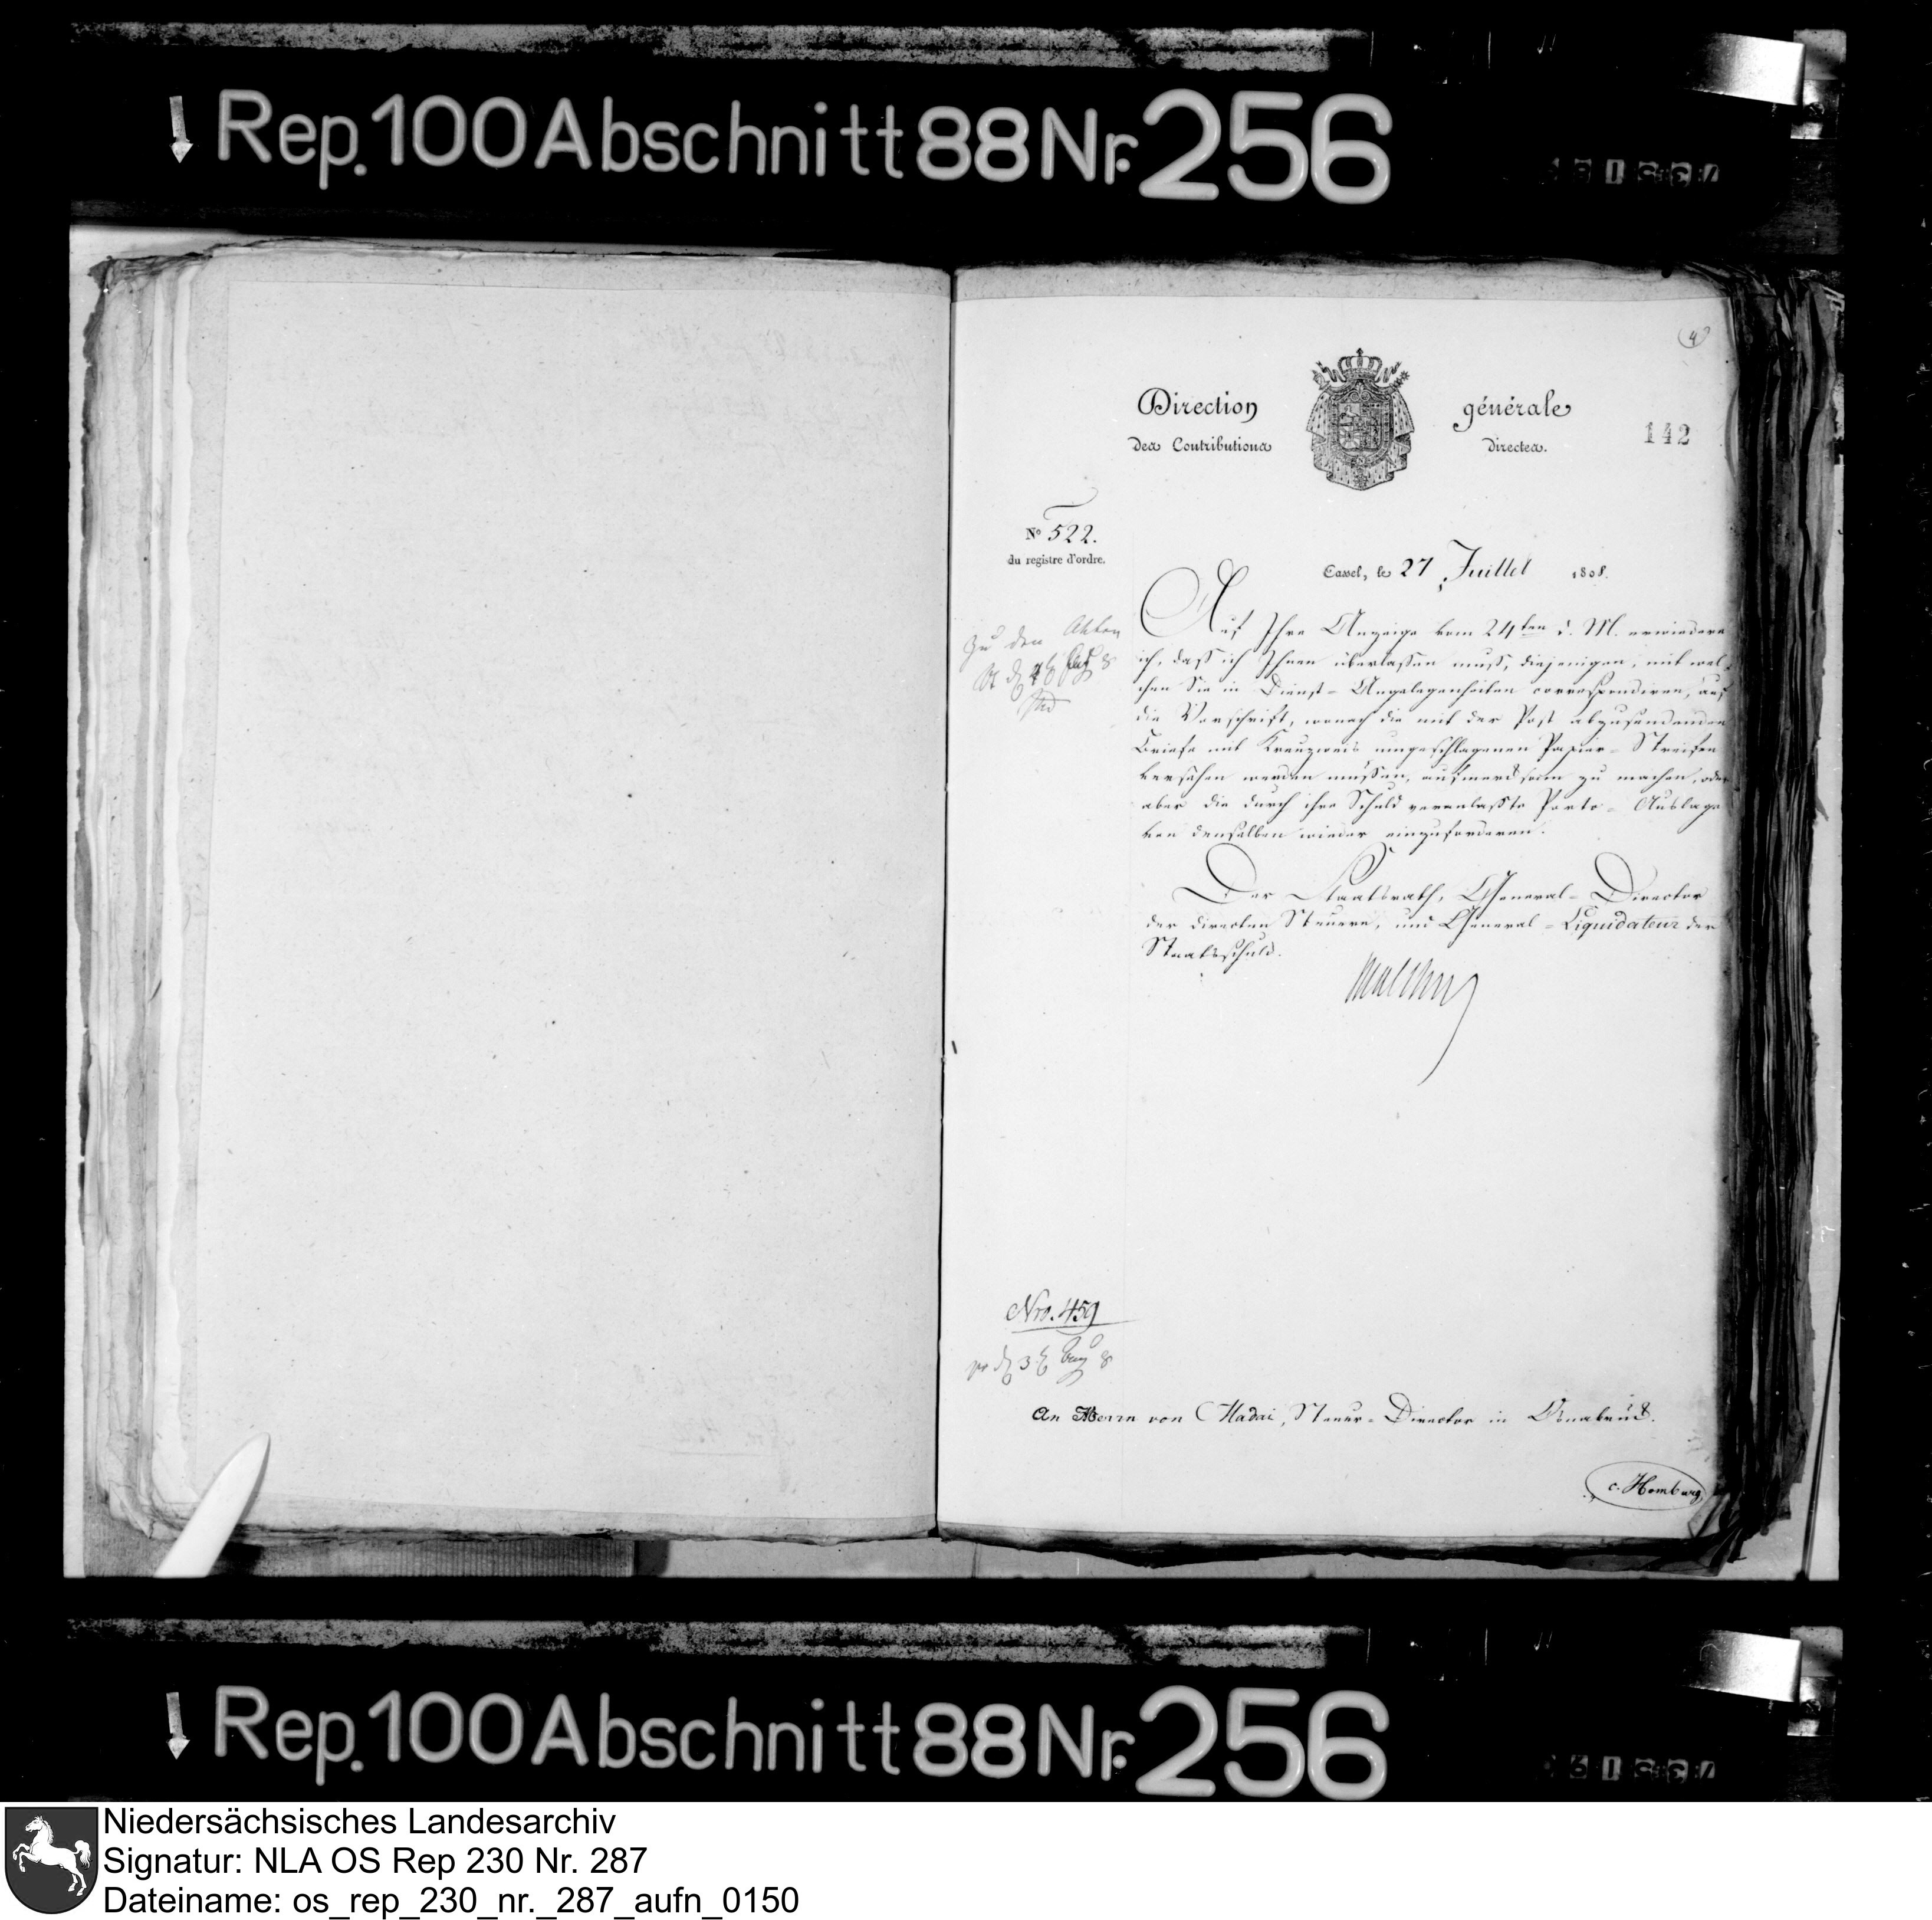 Rep. 100 Abschnitt 88 Nr. 256
4
Direction générale
des Contributions directes.
142
N° 522.
du registre d'ordre.
Cassel, le 27 Juillet 1808.
zu den Akten
Auf Ihre Anzeige vom 24ten d. M. erwiedere
ich, daß ich Ihnen überlassen muß, diejenigen, mit wel-
chen Sie in Dienst-Angelegenheiten correspondiren, auf
die Vorschrift, wonach die mit der Post abzusendenden
Briefe mit Kreuzweis umgeschlagenen Papier-Streifen
versehen werden müssen, aufmerksam zu machen, oder
aber die durch ihre Schuld veranlaßte Porto-Auslage
von denselben wieder einzuforderen.
Der Staatsrath, General-Director
der directen Steuern, und General-Liquidateur der
Staatsschuld.
Malchus
Nro. 459
An Herrn von Madai, Steuer-Director in Osnabrück.
c. Homburg
Rep. 100 Abschnitt 88 Nr. 256
Niedersächsisches Landesarchiv
Signatur: NLA OS Rep 230 Nr. 287
Dateiname: os_rep_230_nr._287_aufn_0150